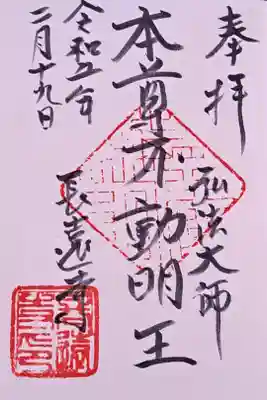 奉拝
弘法大師
本尊不動明王
長遠寺
令和五年
二月十九日